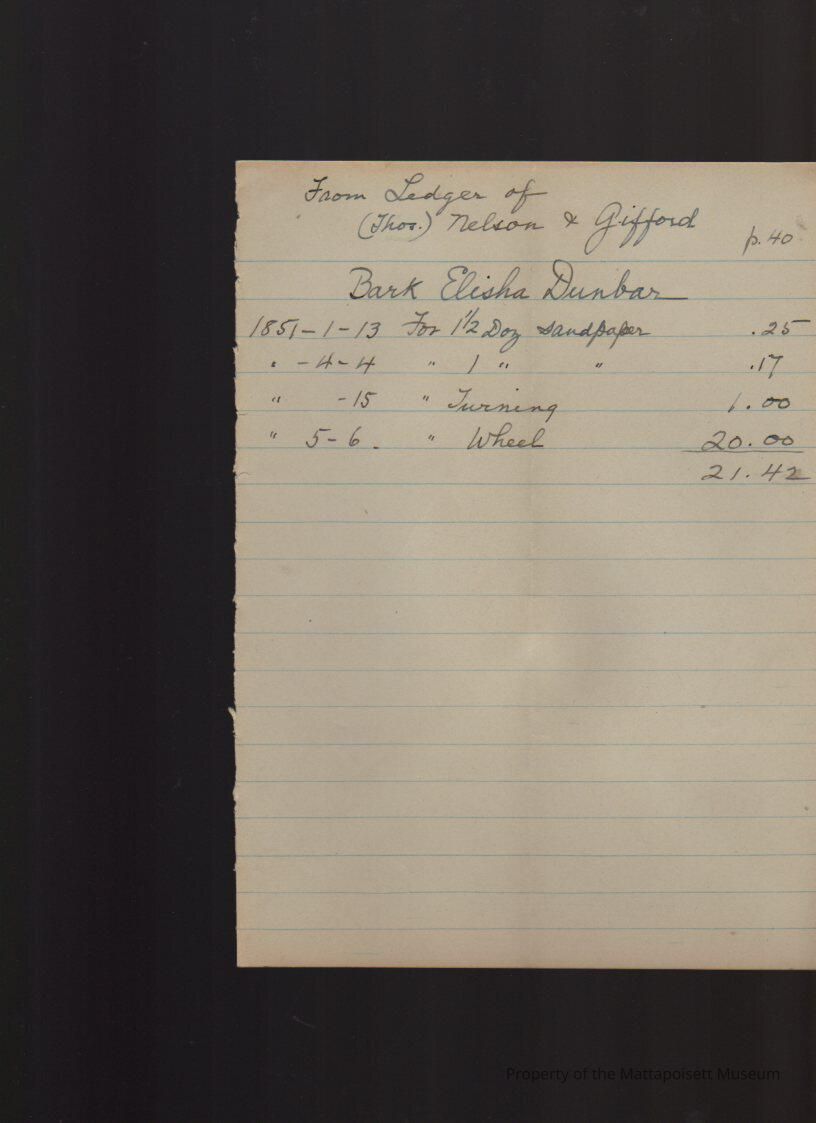 From Ledger of
(Thos.) Nelson & Gifford
p. 40
Bark Elisha Dunbar
1851-1-13 For 1 1/2 Doz sandpaper .25
" -4-4 " 1 " " .17
" -15 " Turning 1.00
" 5-6. " Wheel 20.00
21.42
Property of the Mattapoisett Museum